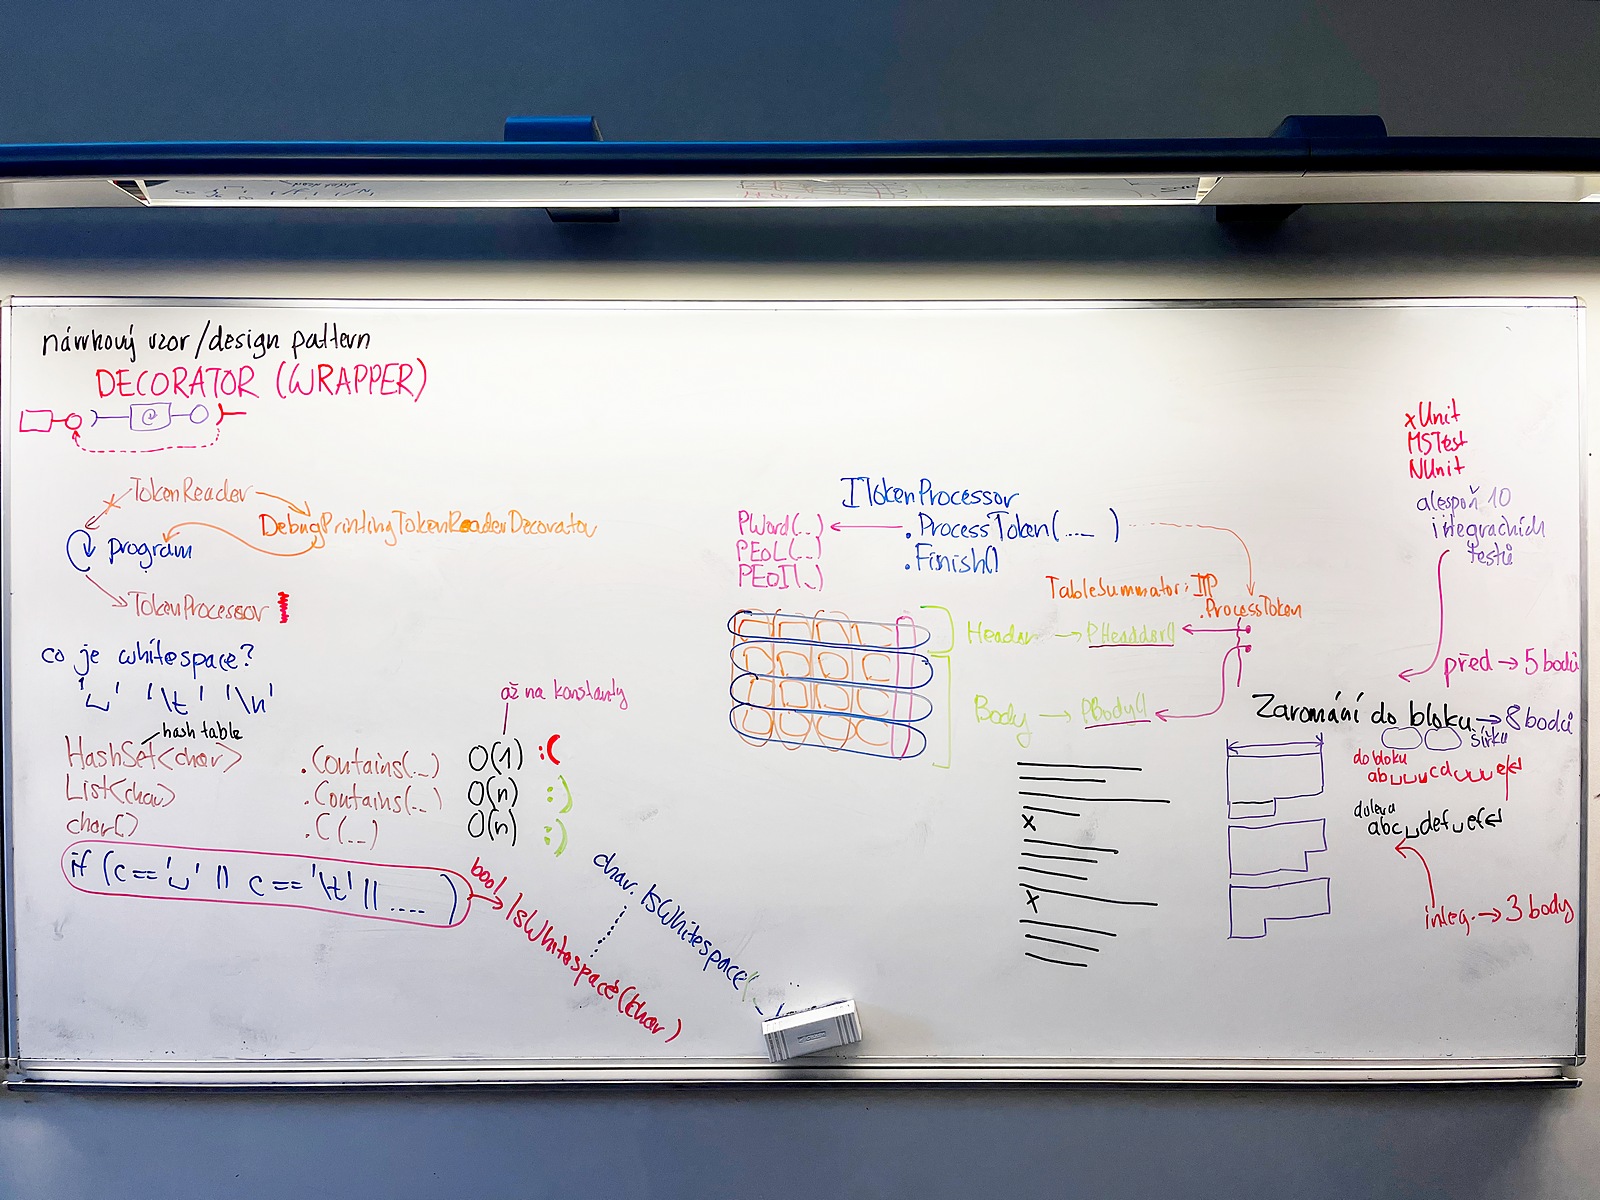 návrhový vzor/design pattern
DECORATOR (WRAPPER)
TokenReader
DebugPrintingTokenReaderDecorator
program
TokenProcessor
co je whitespace?
'␣' '\t' '\n'
hash table
HashSet<char> .Contains(...) O(1) :(
až na konstanty
List<char> .Contains(...) O(n) :)
char[] .C(...) O(n) :)
if (c == '␣' || c == '\t' || .... )
bool IsWhitespace(char)
char.IsWhitespace(
ITokenProcessor
.ProcessToken(.... )
.Finish()
PWord(...)
PEoL(...)
PEoI(...)
TableSummator: ITP
.ProcessToken
Header → PHeadder()
Body → PBody()
x
x
xUnit
MSTest
NUnit
alespoň 10
integračních
testů
před → 5 bodů
Zarovnání do bloku → 8 bodů
šířku
do bloku
ab␣␣␣cd␣␣␣ef↵
doleva
abc␣def␣ef↵
integ. → 3 body